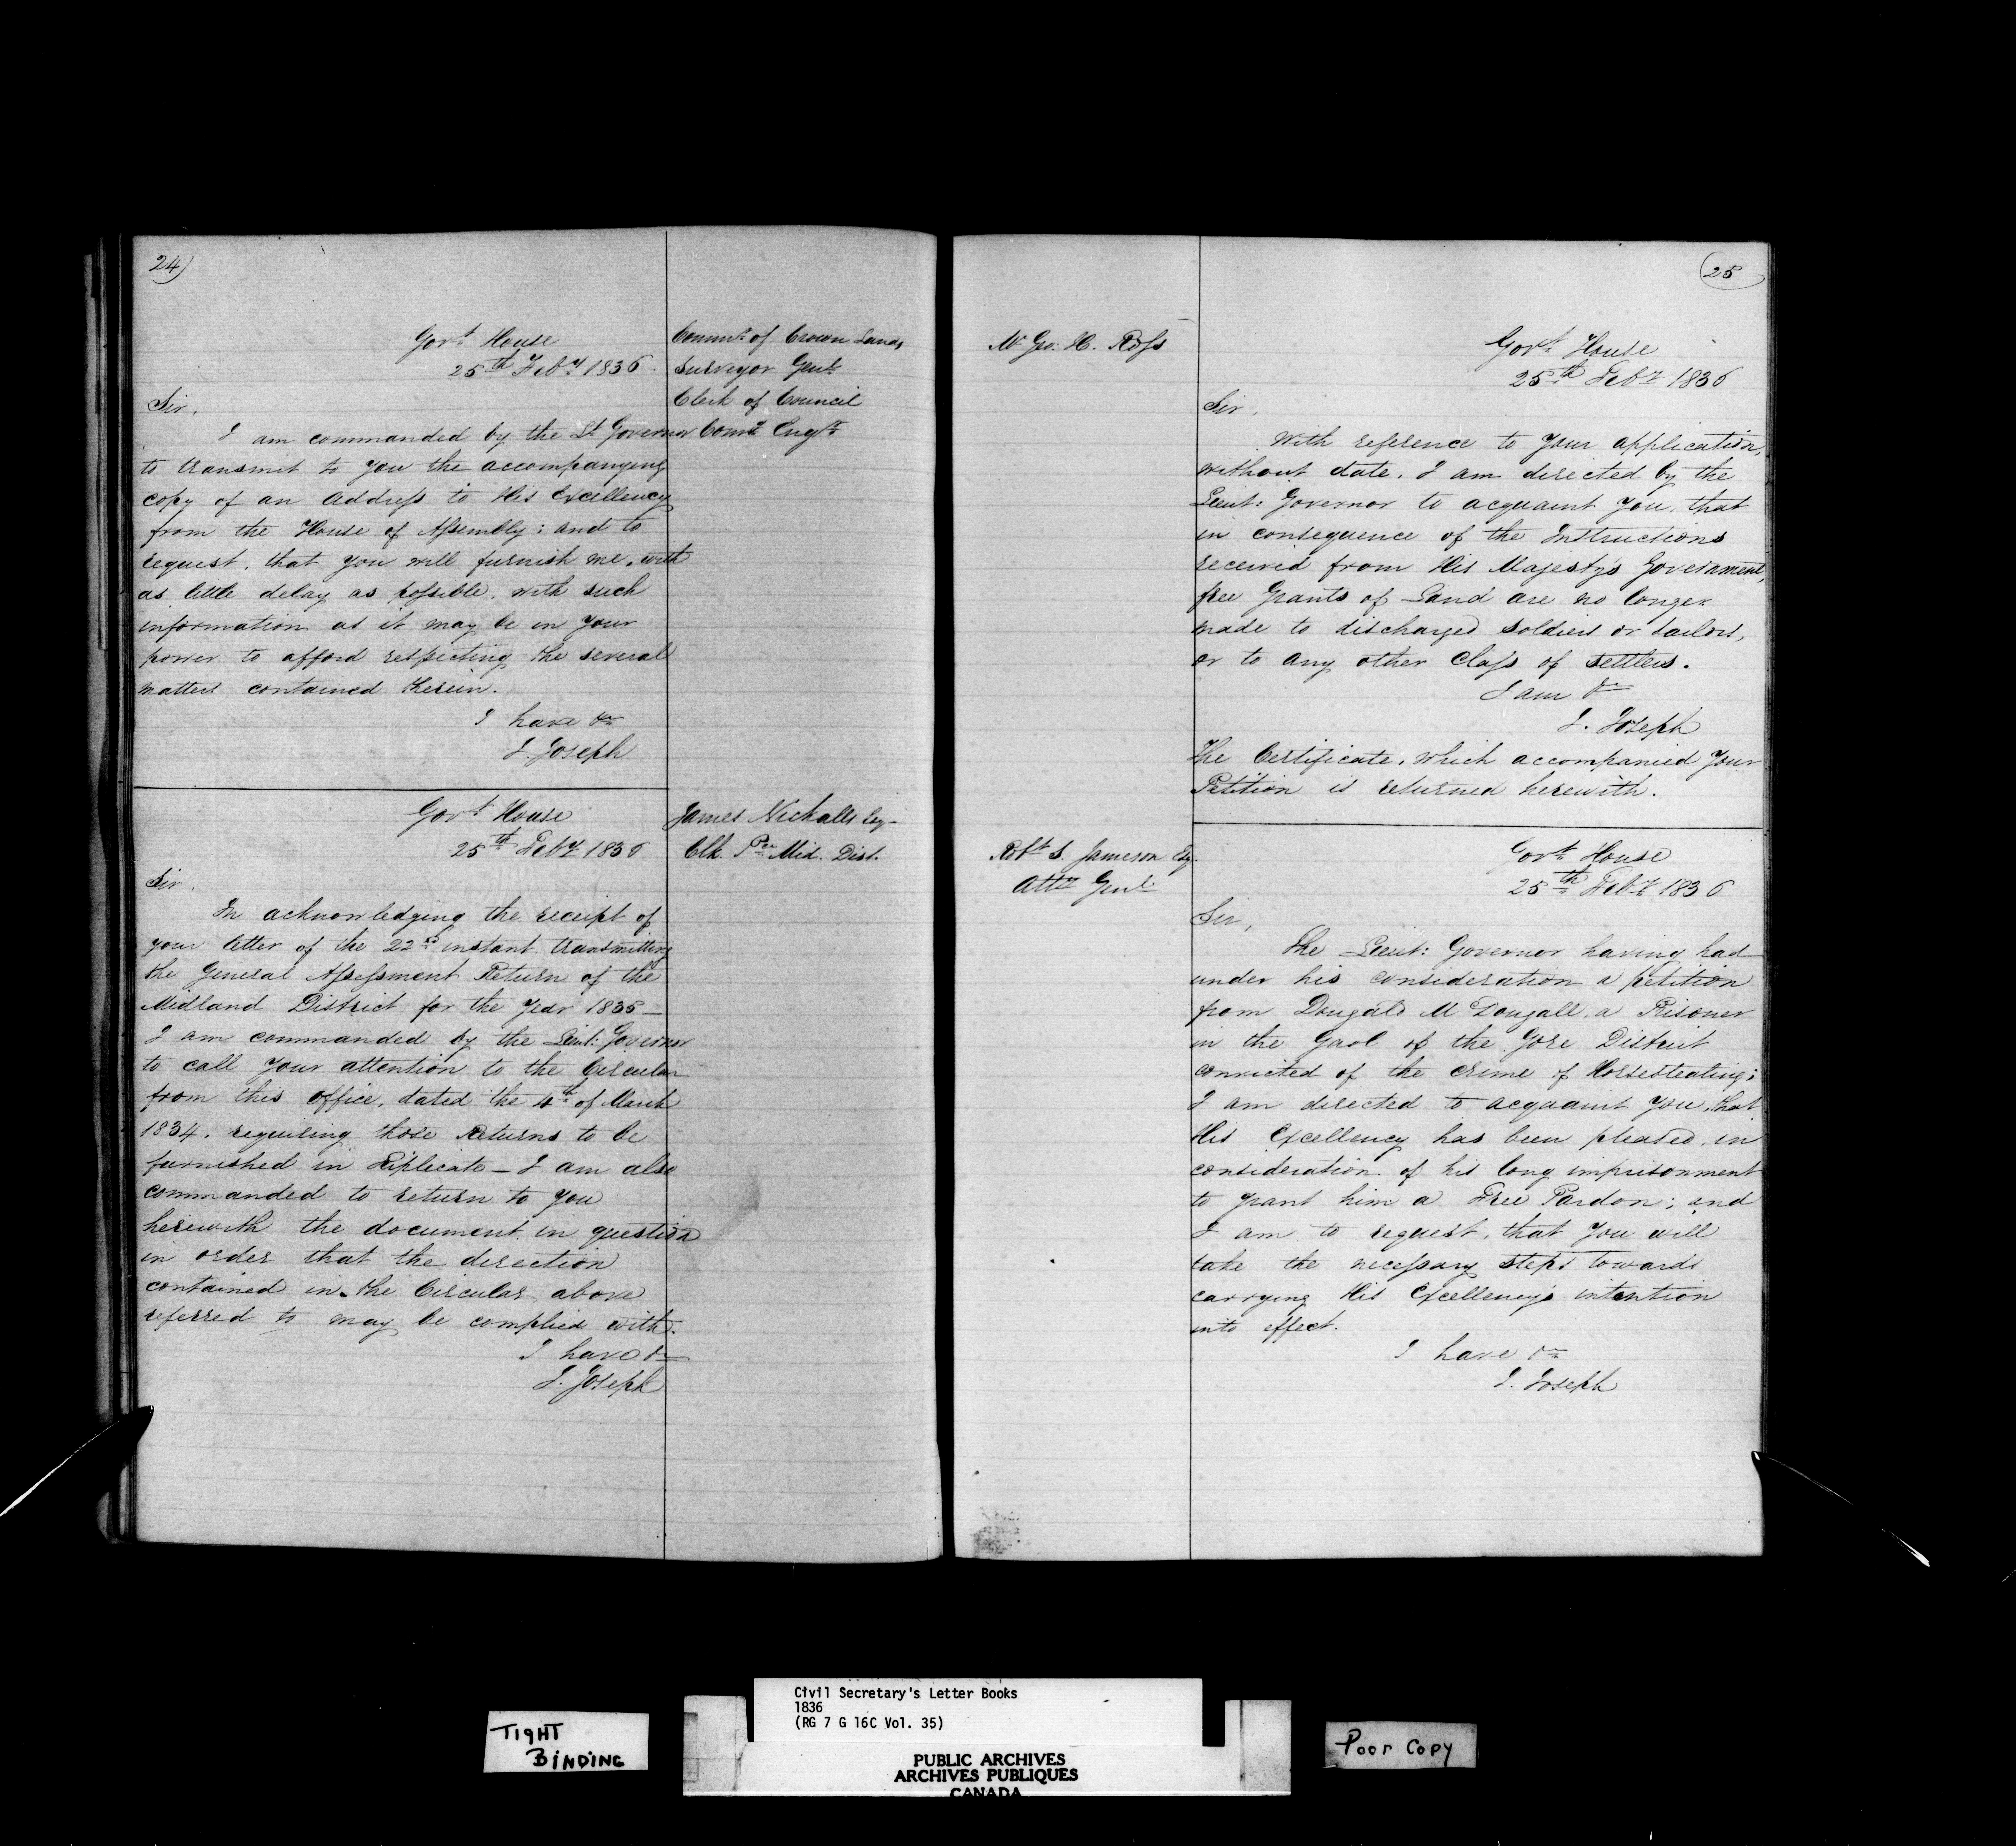 24)
Govt. House
25th Feby 1836.
Commr. of Crown Lands
Surveyor Genl.
Clerk of Council
Sir,
I am commanded by the Lt Governor
to transmit to you the accompanying
copy of an Address to His Excellency
from the House of Assembly; and to
request, that you will furnish me, with
as little delay as possible, with such
information as it may be in your
power to afford respecting the several
matters contained therein.
I have &c
J. Joseph
Govt. House
25th Feby 1836
James Nickalls Esq
Clk. Pce Mid. Dist.
Sir,
In acknowledging the receipt of
your letter of the 22nd instant transmitting
the General Assessment Return of the
Midland District for the Year 1835—
I am commanded by the Lieut: Governor
to call your attention to the Circular
from this office, dated the 4th of March
1834, requiring those Returns to be
furnished in — I am also
commanded to return to you
herewith the document in question
in order that the direction
contained in the Circular above
referred to may be complied with.
I have &c
J. Joseph
25
Mr Geo: H. Ross
Govt. House
25th Feby 1836
Sir,
With reference to your application,
without date, I am directed by the
Lieut: Governor to acquaint you, that
in consequence of the Instructions
received from His Majesty's Government,
free Grants of Land are no longer
made to discharged Soldiers or Sailors,
or to any other Class of settlers.
I am &c
J. Joseph
The Certificate, which accompanied your
Petition is returned herewith.
Robt. S. Jameson Esq.
Atty Genl.
Govt. House
25th Feby 1836
Sir,
The Lieut: Governor having had
under his consideration a petition
from Dougald McDougall, a Prisoner
in the Gaol of the Gore District
convicted of the crime of Horsestealing;
I am directed to acquaint you, that
His Excellency has been pleased, in
consideration of his long imprisonment
to grant him a Free Pardon; and
I am to request, that you will
take the necessary steps towards
carrying His Excellency's intention
into effect.
I have &c
J. Joseph
TIGHT
BINDING
Civil Secretary's Letter Books
1836
(RG 7 G 16C Vol. 35)
PUBLIC ARCHIVES
ARCHIVES PUBLIQUES
CANADA
Poor Copy